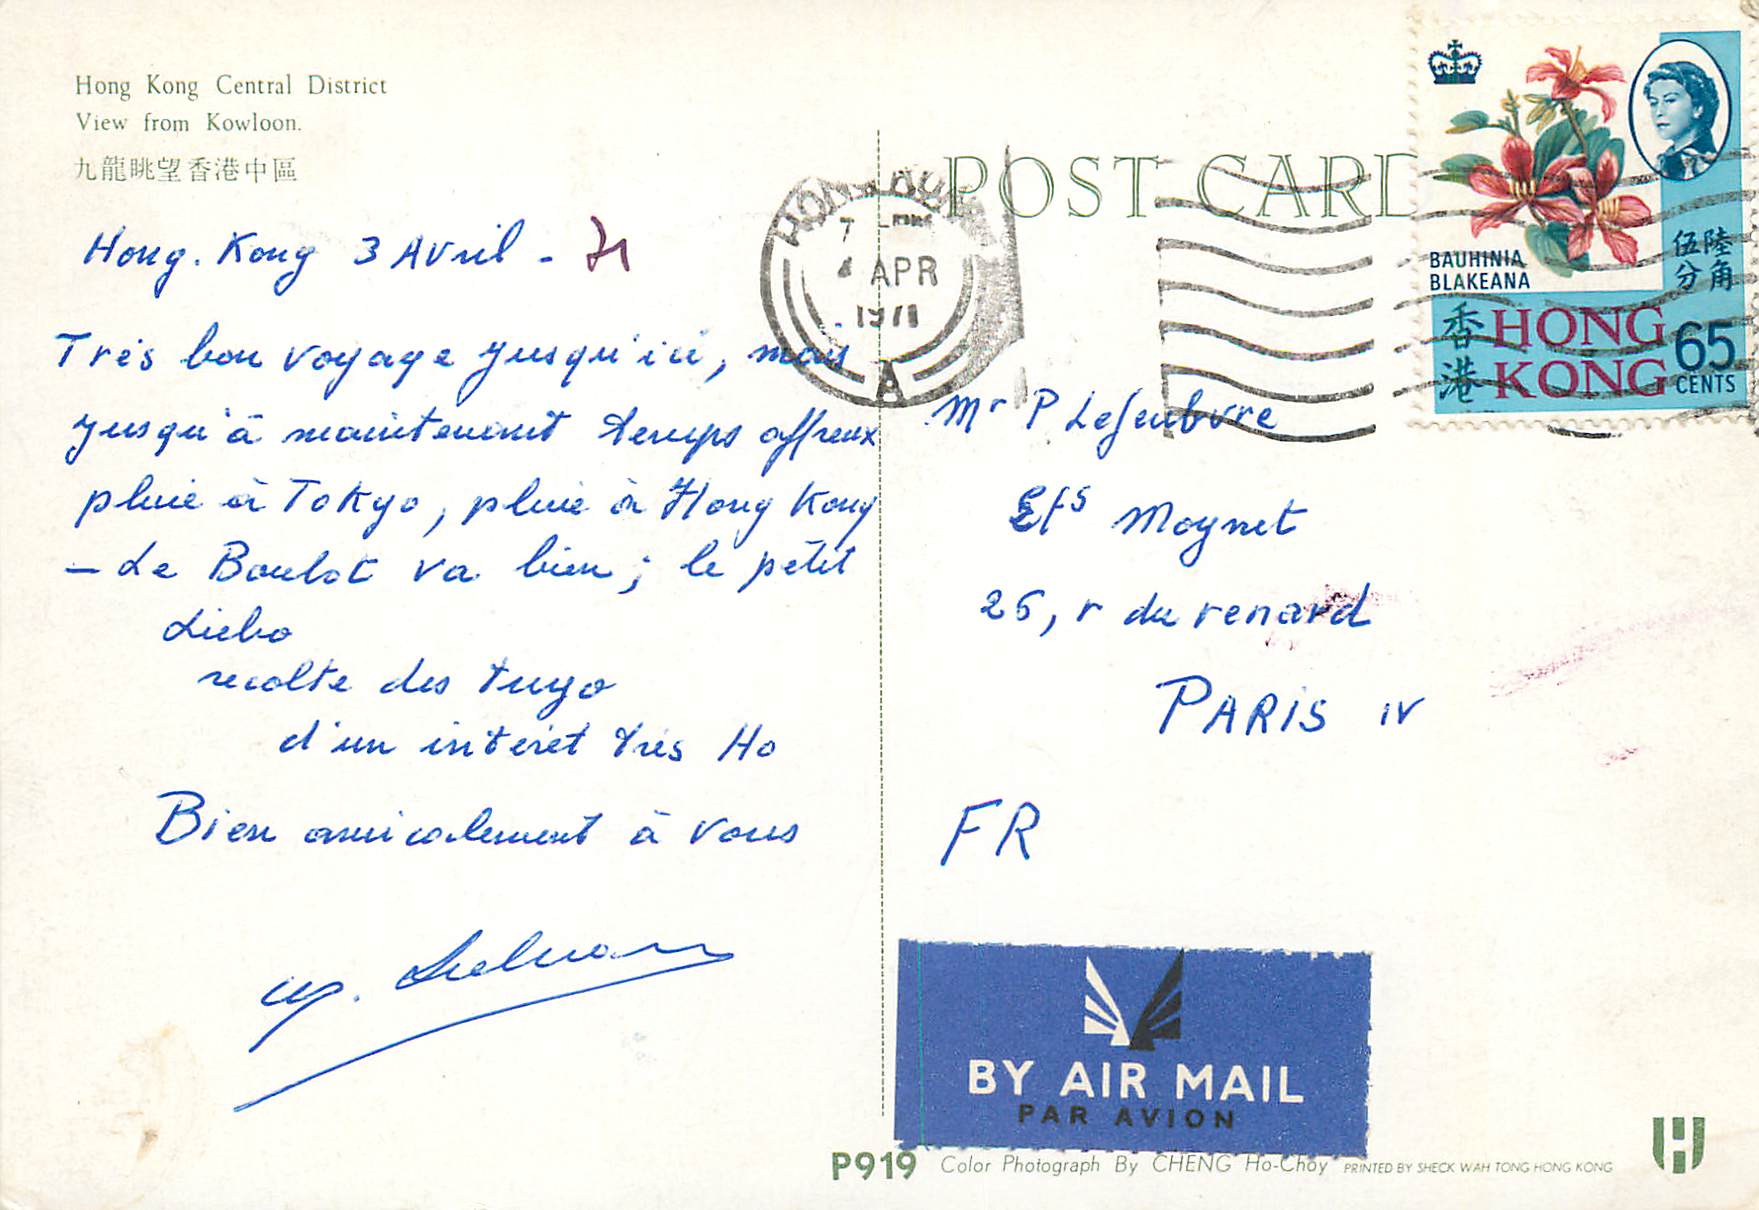 Hong Kong Central District
View from Kowloon.
九龍眺望香港中區
Hong. Kong 3 Avril - 71
Très bon voyage jusqu'ici, mais
jusqu'à maintenant temps affreux
pluie à Tokyo, pluie à Hong Kong
- Le Boulot va bien ; le petit
Liebo
recolte des tuyo
d'un intéret très Ho
Bien amicalement à vous
POST CARD
HONG KONG
7 - PM
4 APR
1971
A
BAUHINIA
BLAKEANA
伍陸
分角
香港
HONG
KONG
65
CENTS
Mr P Lefeubvre
Efs Moynet
26, r du renard
PARIS IV
FR
BY AIR MAIL
PAR AVION
P919 Color Photograph By CHENG Ho-Choy PRINTED BY SHECK WAH TONG HONG KONG